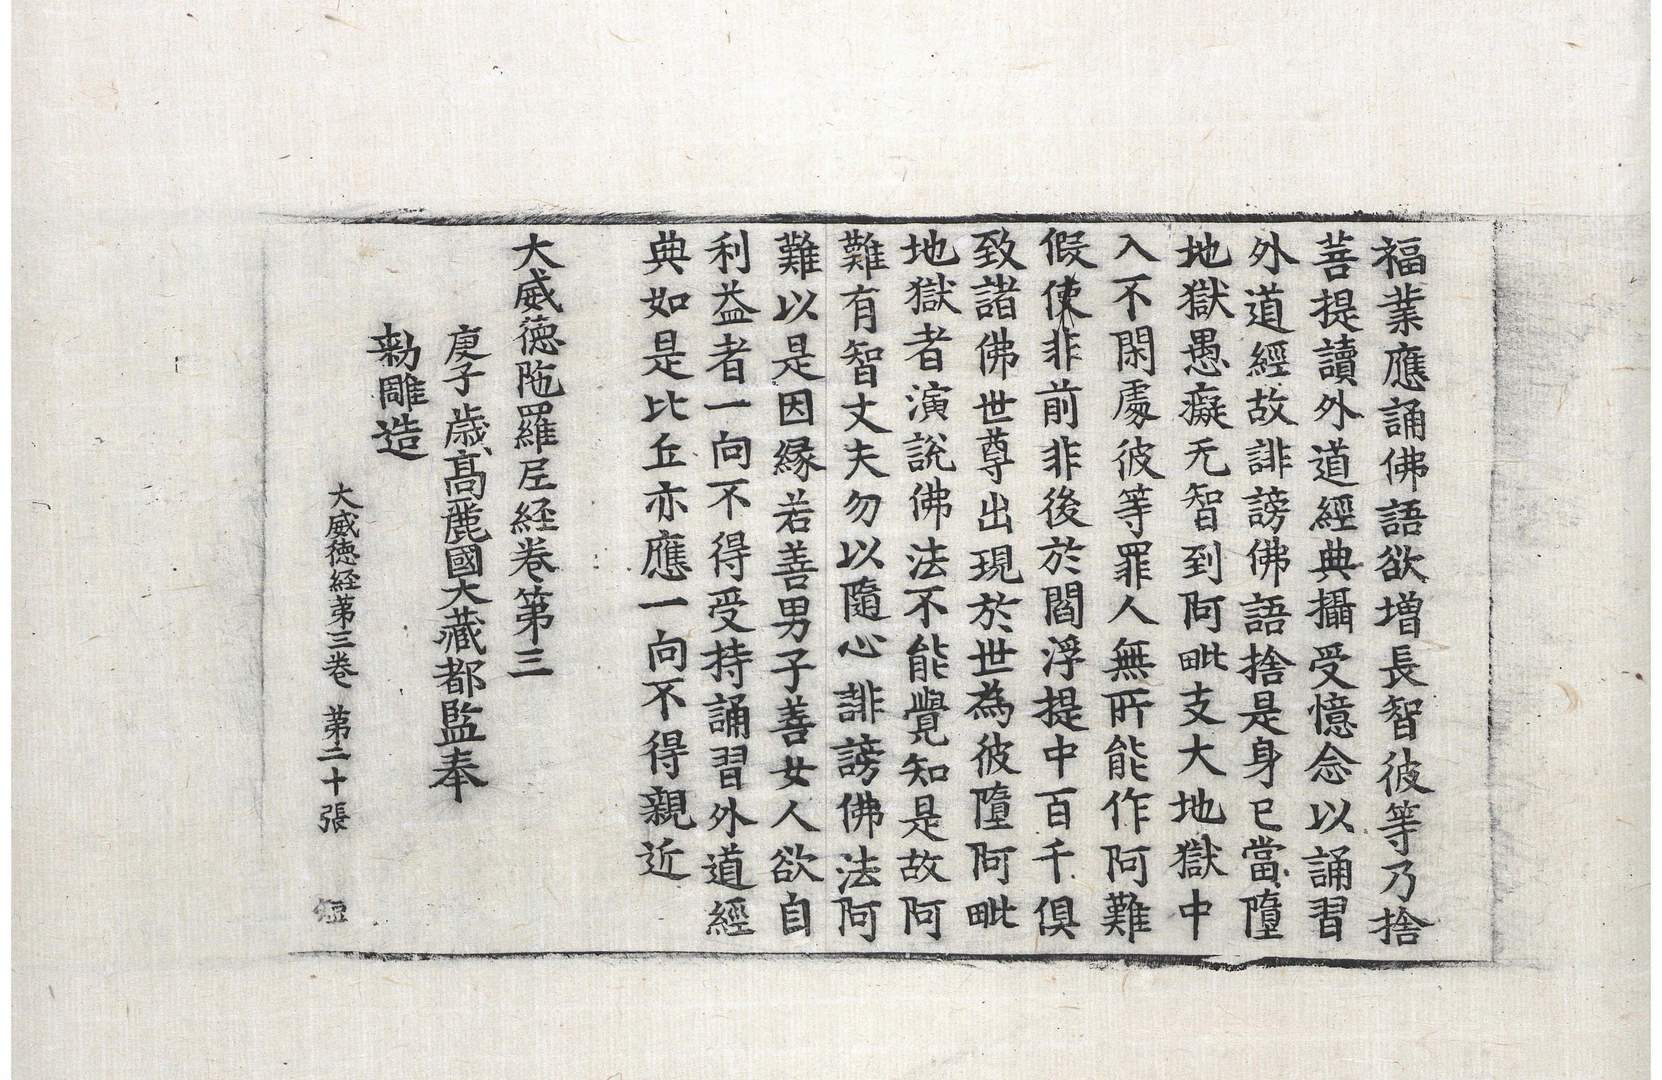 福業應誦佛語欲增長智彼等乃捨
菩提讀外道經典攝受憶念以誦習
外道經故誹謗佛語捨是身已當墮
地獄愚癡无智到阿毗支大地獄中
入不閑處彼等罪人無所能作阿難
假使非前非後於閻浮提中百千俱
致諸佛世尊出現於世為彼墮阿毗
地獄者演說佛法不能覺知是故阿
難有智丈夫勿以隨心誹謗佛法阿
難以是因緣若善男子善女人欲自
利益者一向不得受持誦習外道經
典如是比丘亦應一向不得親近
大威德陁羅尼経卷第三
庚子歲高麗國大藏都監奉
勑雕造
大威德経第三卷 第二十張